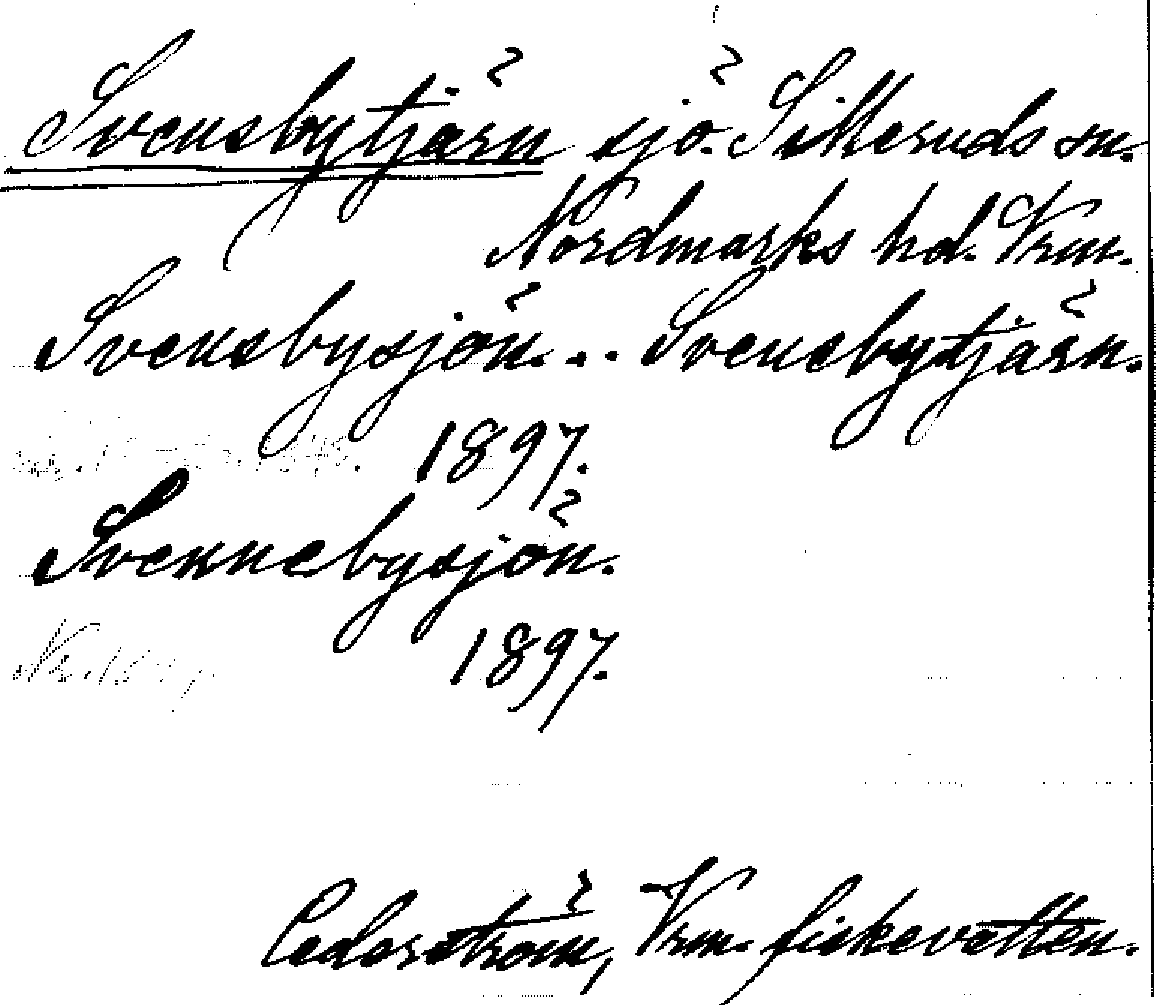 Svensbytjärn sjö. Silleruds sn.
Nordmarks hd. Vrm.
Svensbysjön... Svensbytjärn.
1897.
Svennebysjön.
1897.
Cederström, Vrm. fiskevatten.